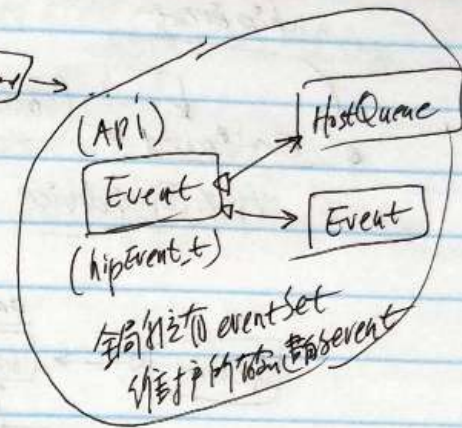 (API)
HostQueue
Event
Event
(hipEvent_t)
全局 有 eventSet
维护所有 的event